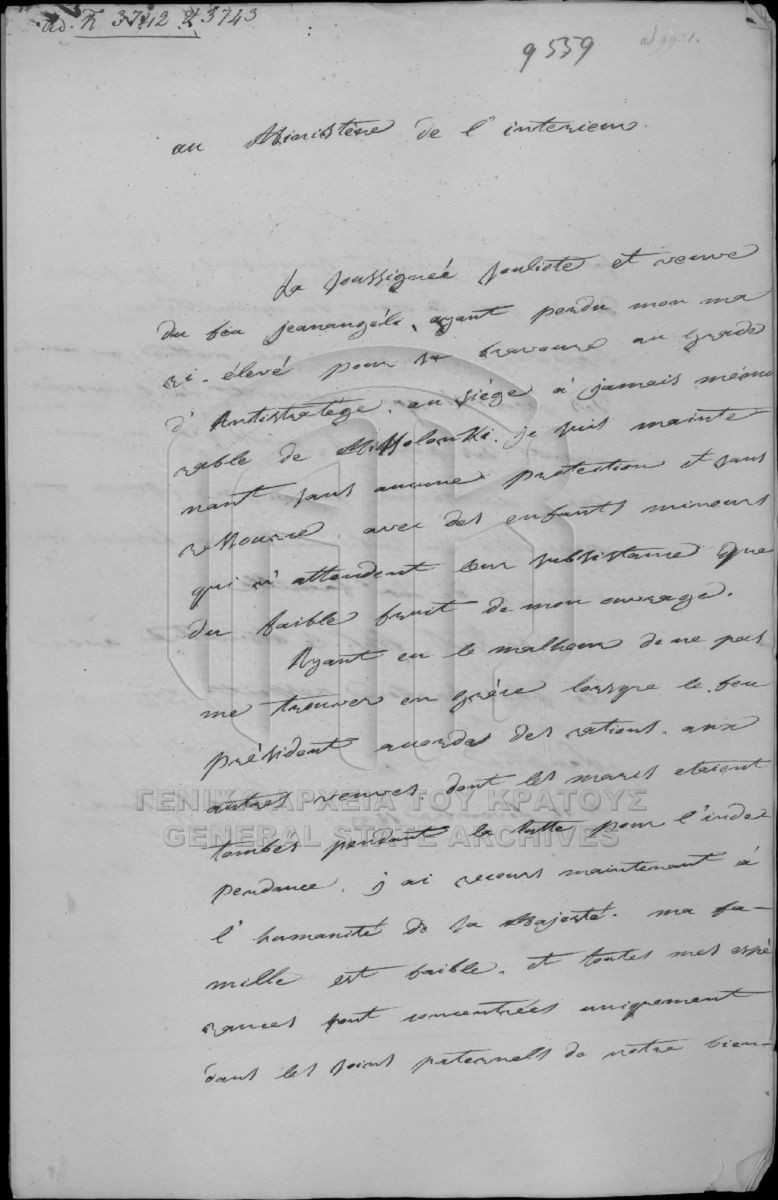 ad. N 3742 & 3743
9559
ad 992 1.
au Ministère de l'interieur.
La soussigneé souliote et veuve
du feu jeanangéli, ayant perdu mon ma
ri. élevé pour sa bravoure au grade
d'Antistratège. au siége à jamais mémo
rable de Missolonki. je suis mainte
nant sans aucune protection et sans
ressource. avec des enfants mineurs
qui n'attendent leur subsistance que
du faible fruit de mon ouvrage.
Ayant eu le malheur de ne pas
me trouver en grèce lorsque le feu
président accorda des rations. aux
autres veuves dont les maris etaient
tombés pendant la lutte pour l'indé
pendance. j'ai recours maintenant à
l'humanité de sa Majesté. ma fa-
mille est faible. et toutes mes espé
rances sont concentrées uniquement
dans les soins paternels de notre bien-
ΓΕΝΙΚΑ ΑΡΧΕΙΑ ΤΟΥ ΚΡΑΤΟΥΣ
GENERAL STATE ARCHIVES